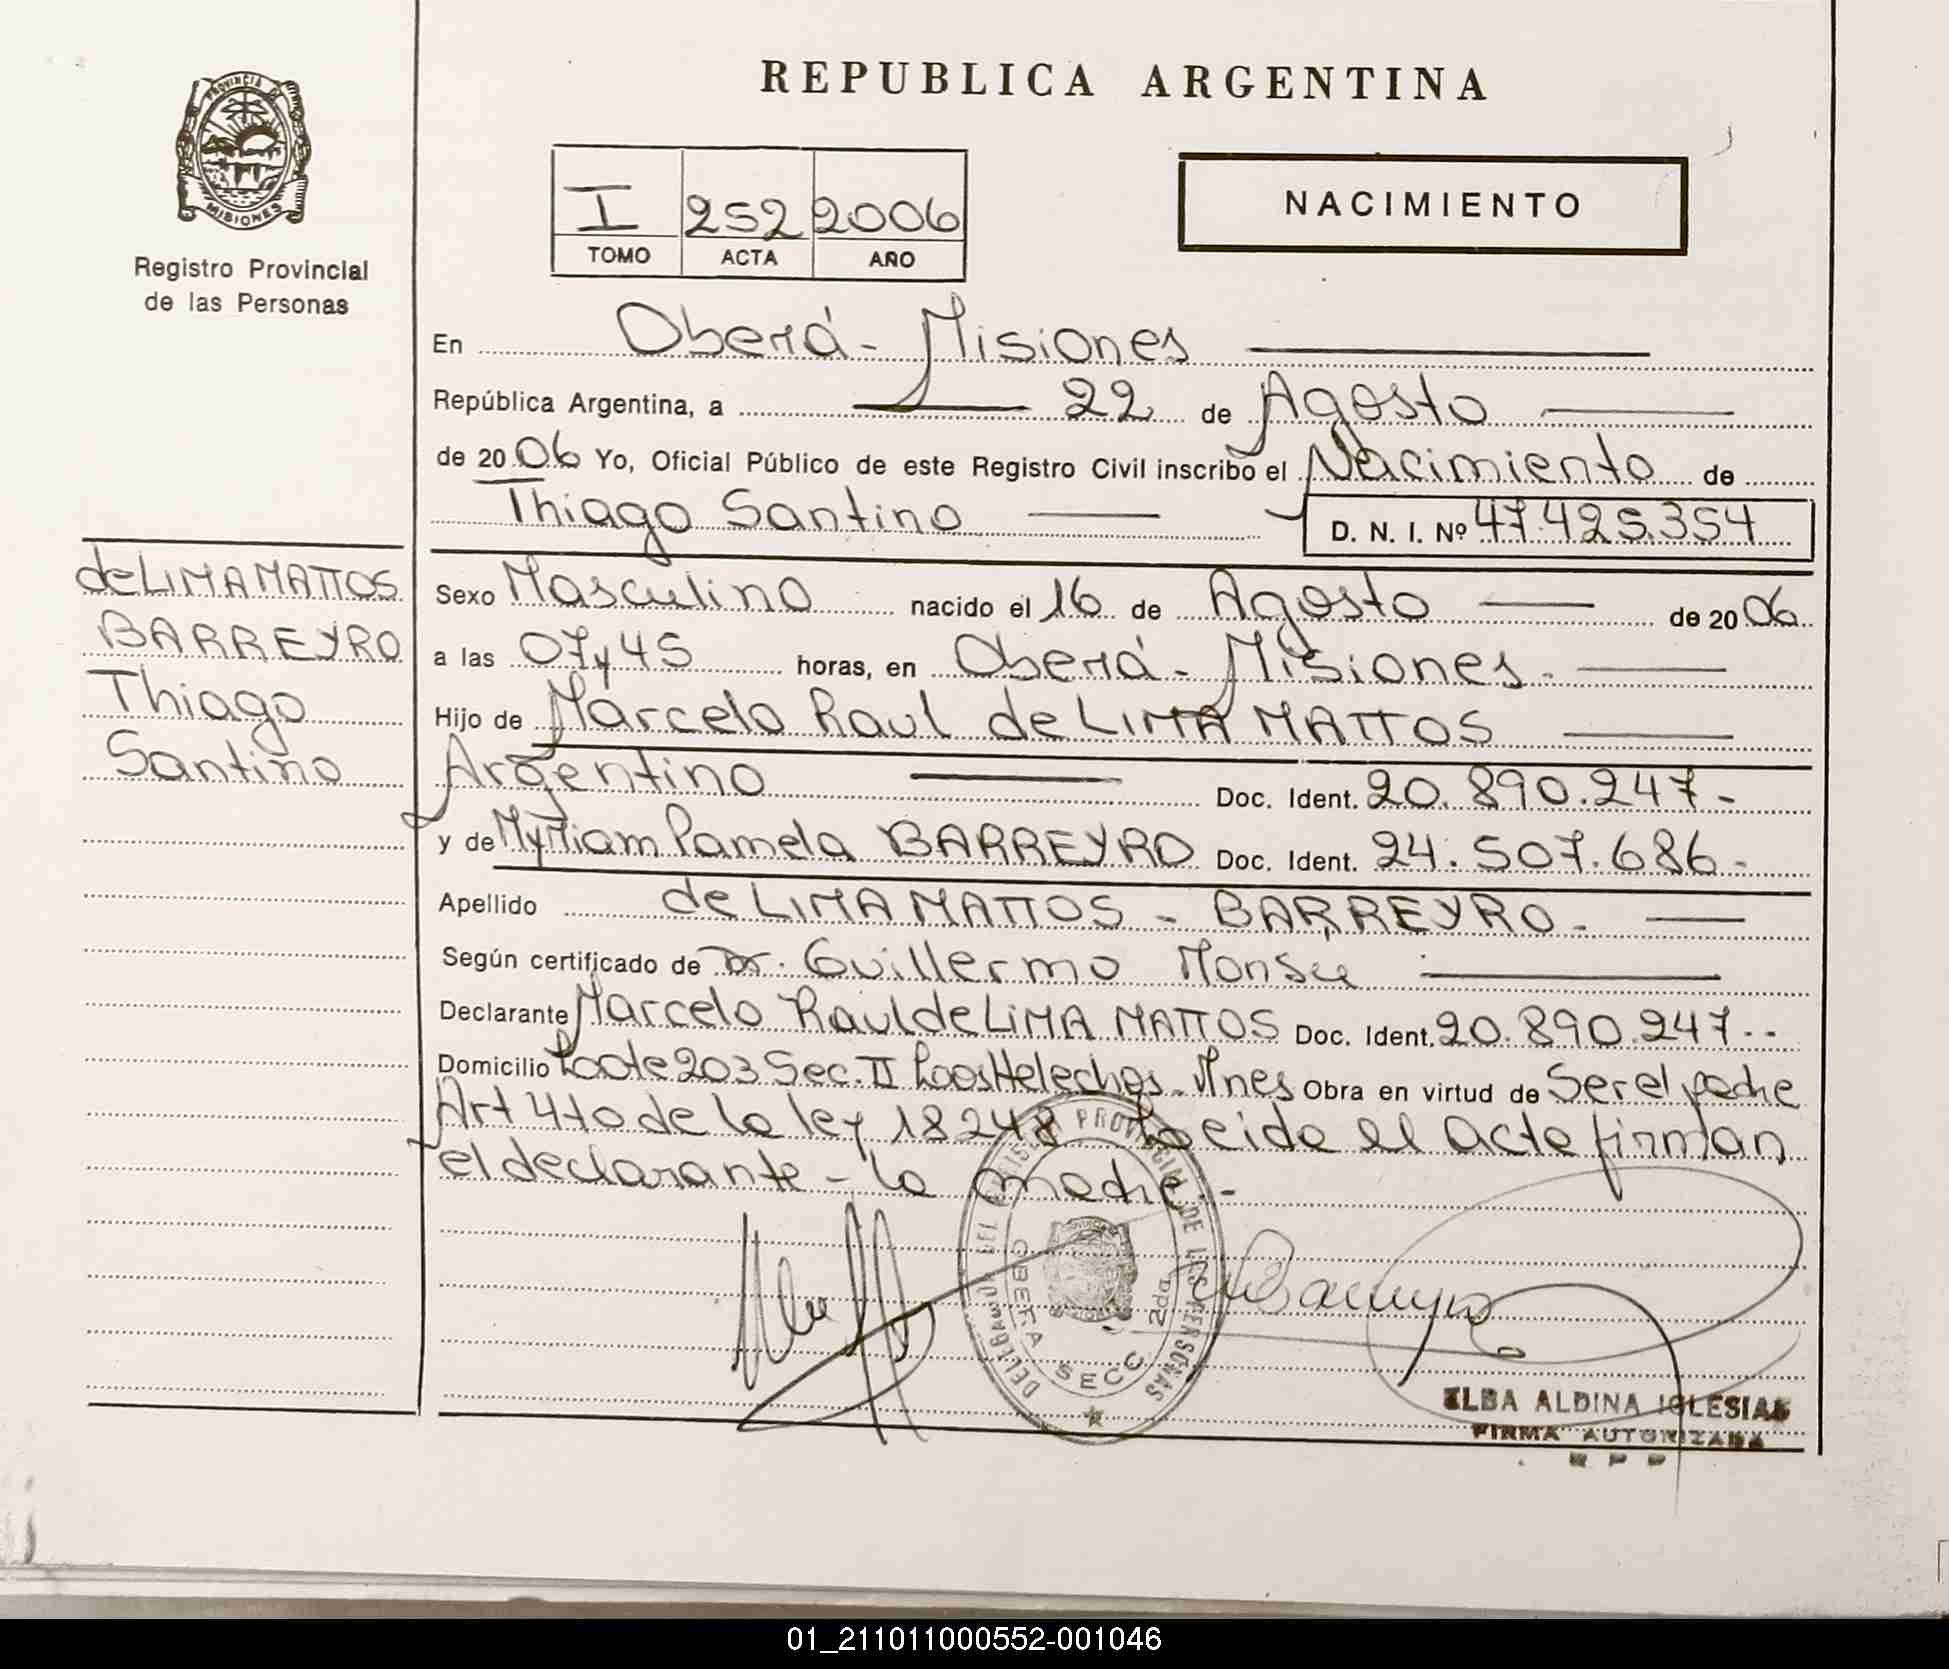 REPUBLICA ARGENTINA
PROVINCIA DE
MISIONES
Registro Provincial
de las Personas
I 252 2006
TOMO ACTA AÑO
NACIMIENTO
En Oberá - Misiones
República Argentina, a 22 de Agosto
de 2006 Yo, Oficial Público de este Registro Civil inscribo el Nacimiento de
Thiago Santino D. N. I. Nº 47.425.354
de LIMA MATTOS
BARREYRO
Thiago
Santino
Sexo Masculino nacido el 16 de Agosto de 2006
a las 07y45 horas, en Oberá - Misiones.
Hijo de Marcelo Raul de LIMA MATTOS
Argentino Doc. Ident. 20.890.247.-
y de Myriam Pamela BARREYRO Doc. Ident. 24.507.686.-
Apellido de LIMA MATTOS - BARREYRO.
Según certificado de Dr. Guillermo Monsu
Declarante Marcelo Raul de LIMA MATTOS Doc. Ident. 20.890.247.-
Domicilio Lote 203 Sec. II Los Helechos - Mnes Obra en virtud de Ser el padre
Art 4to de la ley 18248 Leida el Acta firman
el declarante - la madre.-
DELEGACION DEL REGISTRO PROVINCIAL DE LAS PERSONAS
OBERA SECC 2da
ELBA ALDINA IGLESIAS
FIRMA AUTORIZADA
R P P
01_211011000552-001046